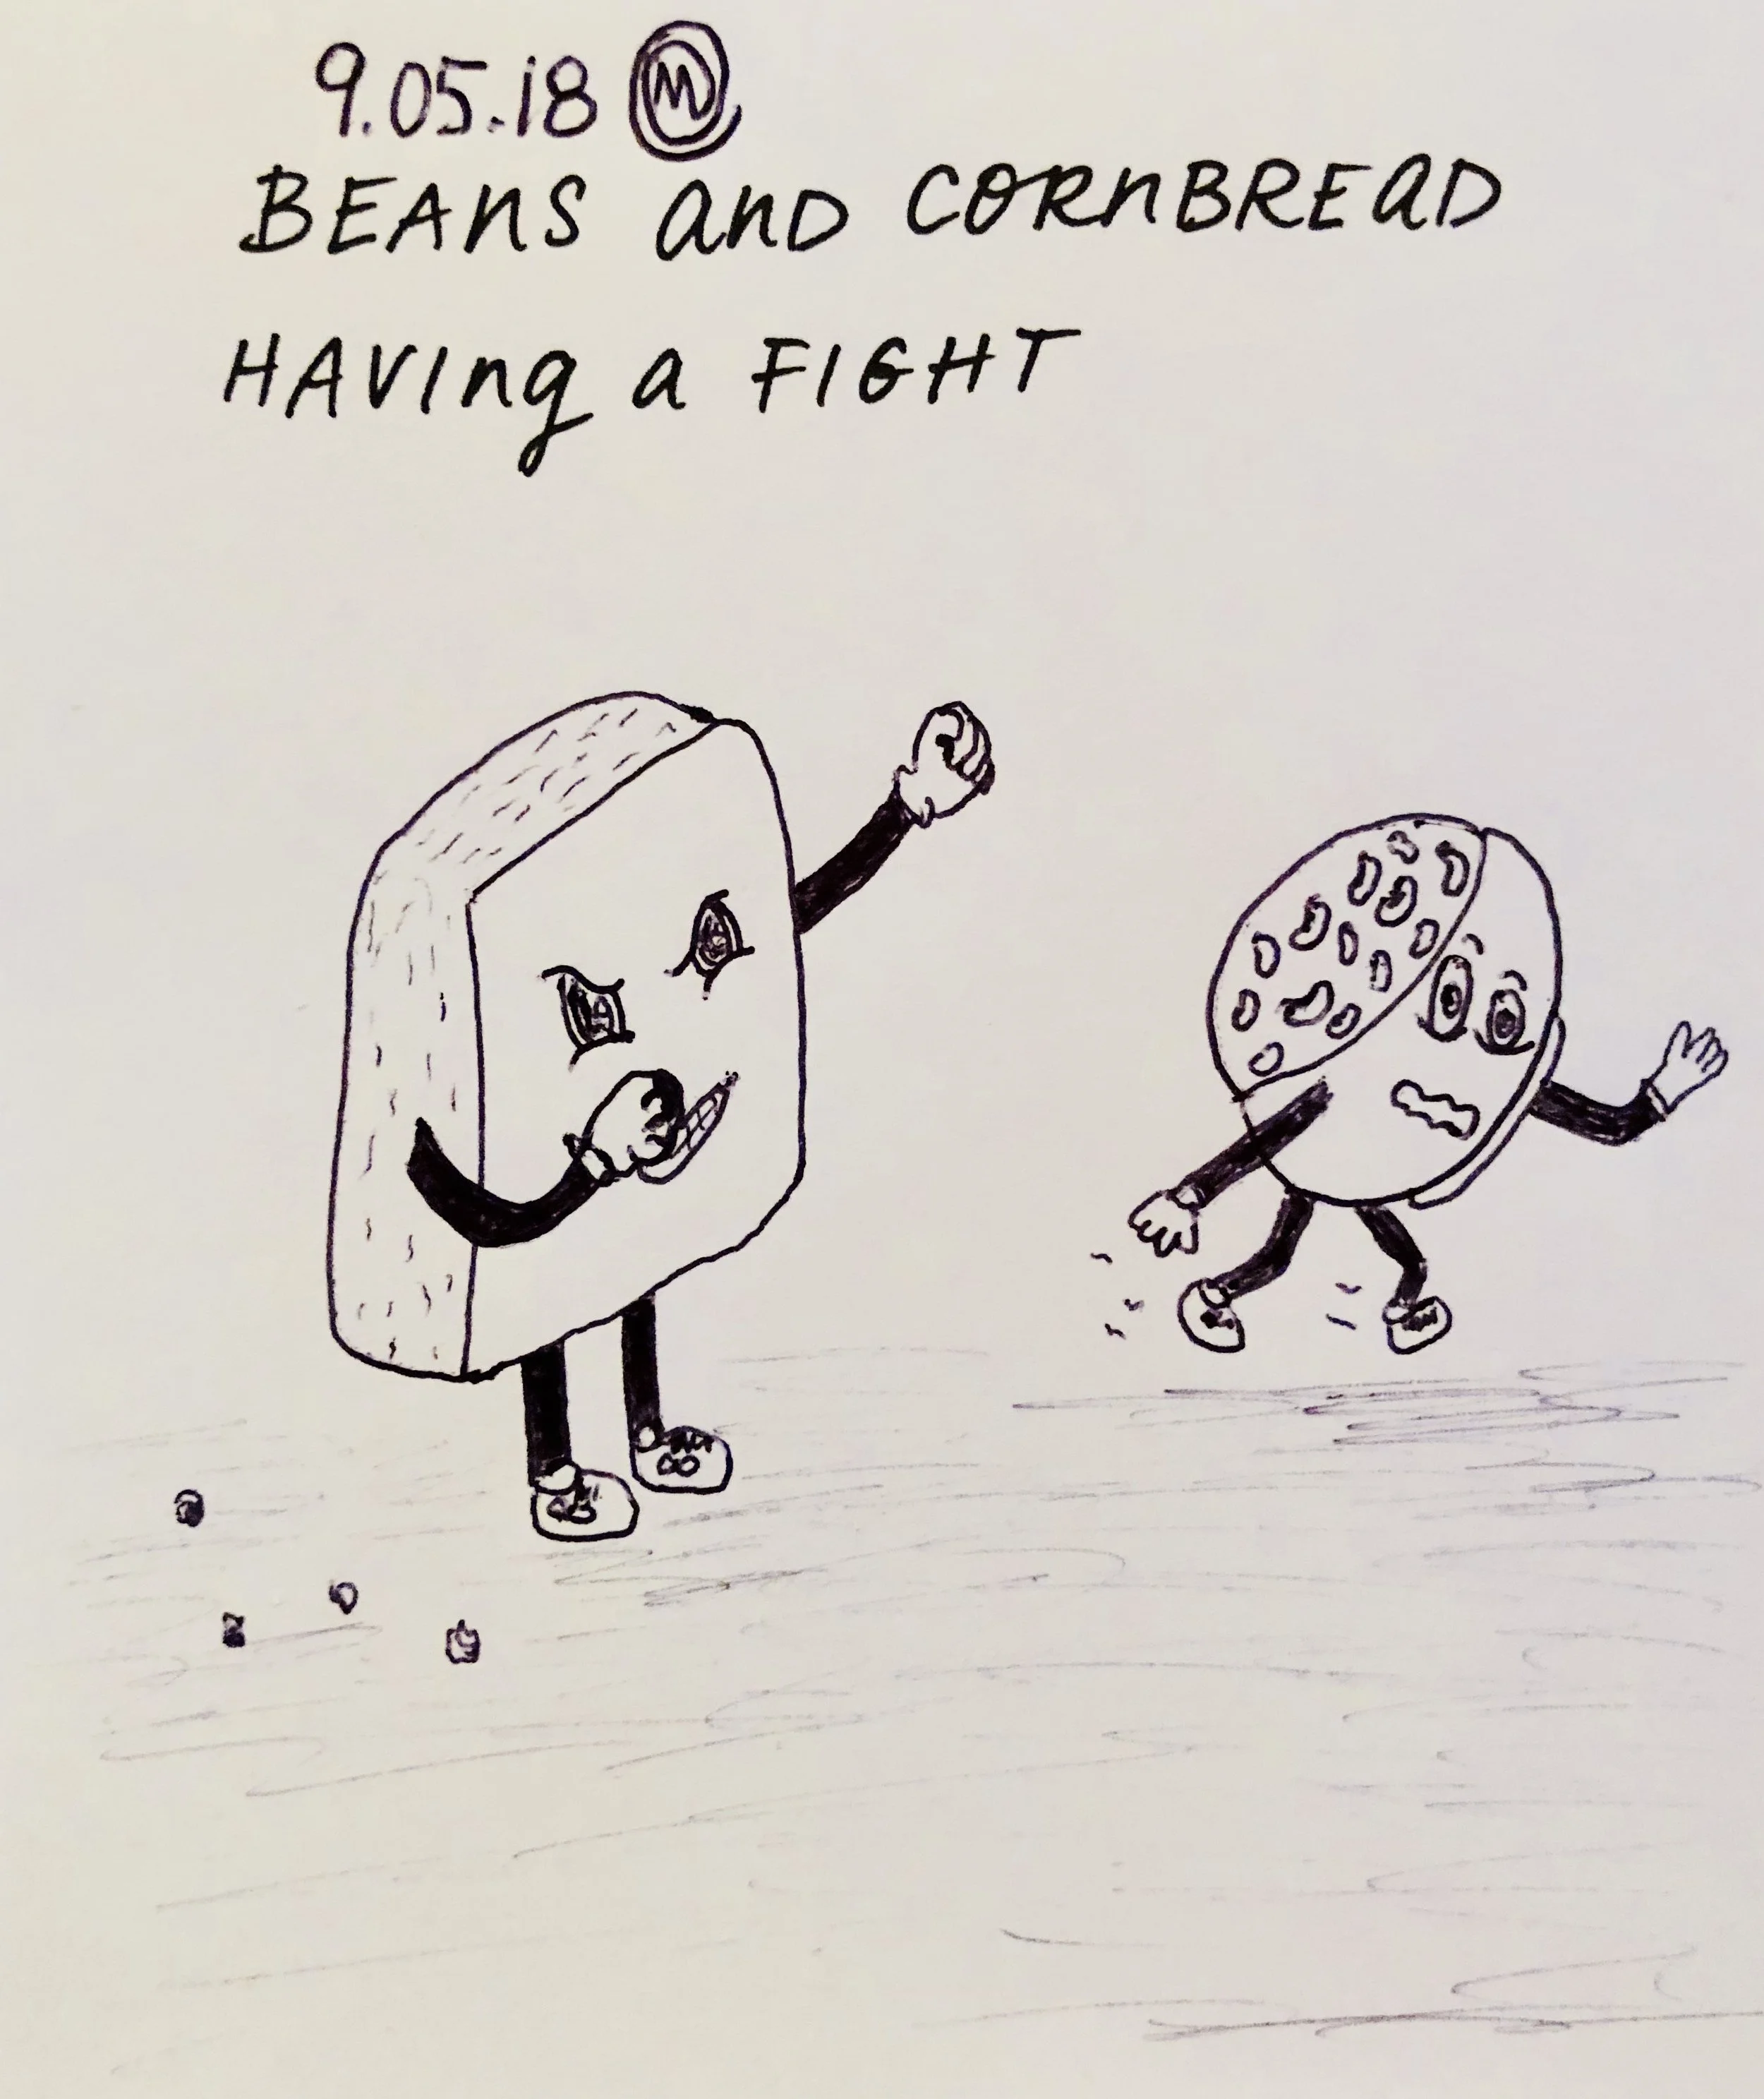 9.05.18 M
BEANS and CORNBREAD
HAVING a FIGHT